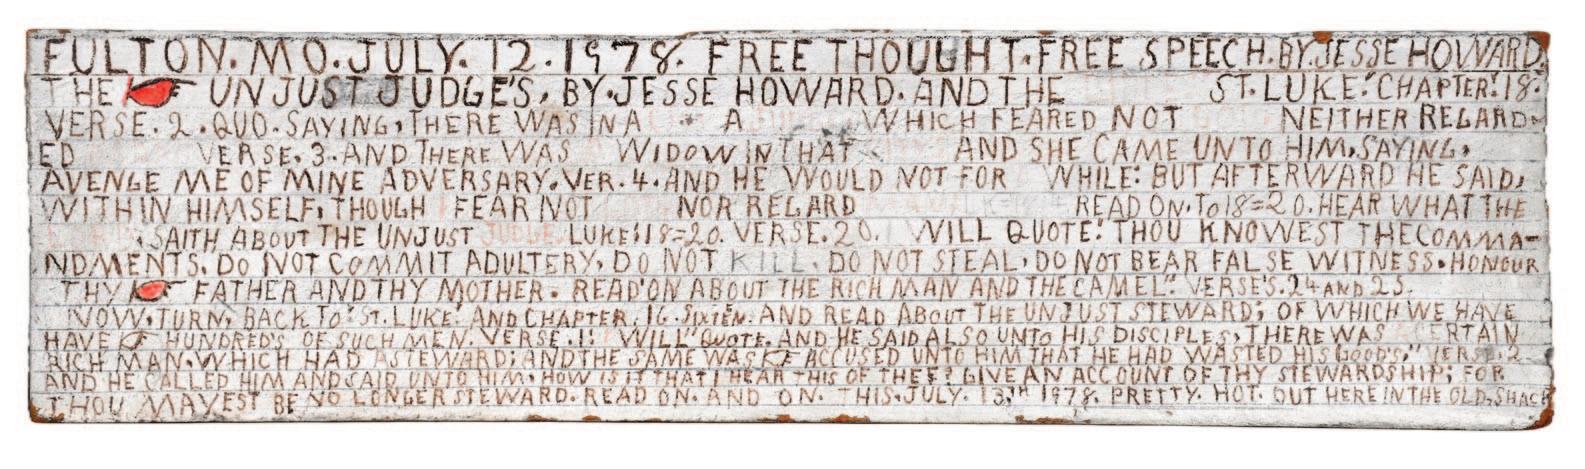 FULTON. MO. JULY. 12. 1978. FREE THOUGHT. FREE SPEECH. BY. JESSE HOWARD.
THE UNJUST JUDGE'S, BY. JESSE HOWARD. AND THE ST. LUKE! CHAPTER! 18.
VERSE. 2. QUO. SAYING, THERE WAS IN A A WHICH FEARED NOT NEITHER REGARD-
ED VERSE. 3. AND THERE WAS WIDOW IN THAT AND SHE CAME UNTO HIM, SAYING,
AVENGE ME OF MINE ADVERSARY. VER. 4. AND HE WOULD NOT FOR WHILE: BUT AFTERWARD HE SAID,
WITHIN HIMSELF, THOUGH FEAR NOT NOR REGARD READ ON. TO 18=20. HEAR WHAT THE
, SAITH ABOUT THE UNJUST JUDGE, LUKE! 18=20. VERSE. 20. WILL QUOTE! THOU KNOWEST THE COMMA-
NDMENTS. DO NOT COMMIT ADULTERY, DO NOT KILL. DO NOT STEAL, DO NOT BEAR FALSE WITNESS. HONOUR
THY FATHER AND THY MOTHER. READ'ON ABOUT THE RICH MAN AND THE CAMEL." VERSE'S. 24 AND 25.
NOW. TURN. BACK TO "ST. LUKE! AND CHAPTER. 16. SIXTEN. AND READ ABOUT THE UNJUST STEWARD; OF WHICH WE HAVE
HAVE HUNDRED'S OF SUCH MEN. VERSE. 1! WILL "QUOTE. AND HE SAID ALSO UNTO HIS DISCIPLES, THERE WAS CERTAIN
RICH MAN. WHICH HAD A STEWARD; AND THE SAME WAS ACCUSED UNTO HIM THAT HE HAD WASTED HIS GOODS." VERSE. 2.
AND HE CALLED HIM AND SAID UNTO HIM, HOW IS IT THAT I HEAR THIS OF THEE? GIVE AN ACCOUNT OF THY STEWARDSHIP; FOR
THOU MAYEST BE NO LONGER STEWARD. READ ON. AND ON. THIS. JULY. 1978. PRETTY. HOT. OUT HERE IN THE OLD, SHACK